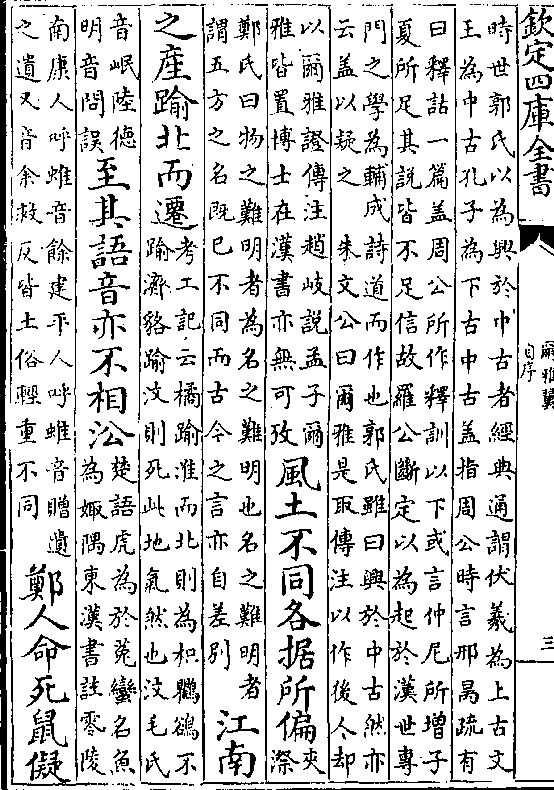 欽定四庫全書
爾雅翼
自序
三
時世郭氏以為興於中古者經典通謂伏羲為上古文
王為中古孔子為下古中古蓋指周公時言邢昺疏有
曰釋詁一篇蓋周公所作釋訓以下或言仲尼所增子
夏所足其説皆不足信故羅公斷定以為起於漢世專
門之學為輔成詩道而作也郭氏雖曰興於中古然亦
云蓋以疑之　朱文公曰爾雅是取傳注以作後人却
以爾雅證傳注趙岐說孟子爾
雅皆置博士在漢書亦無可攷
風土不同各据所偏
夾
漈
鄭氏曰物之難明者為名之難明也名之難明者
謂五方之名既已不同而古今之言亦自差別
江南
之産踰北而遷
考工記云橘踰淮而北則為枳鸜鵒不
踰濟貉踰汶則死此地氣然也汶毛氏
音岷陸德
明音問誤
至其語音亦不相沿
楚語虎為於菟蠻名魚
為娵隅東漢書註零陵
南康人呼蜼音餘建平人呼蜼音贈遺
之遺又音余救反皆土俗輕重不同
鄭人命死鼠儗